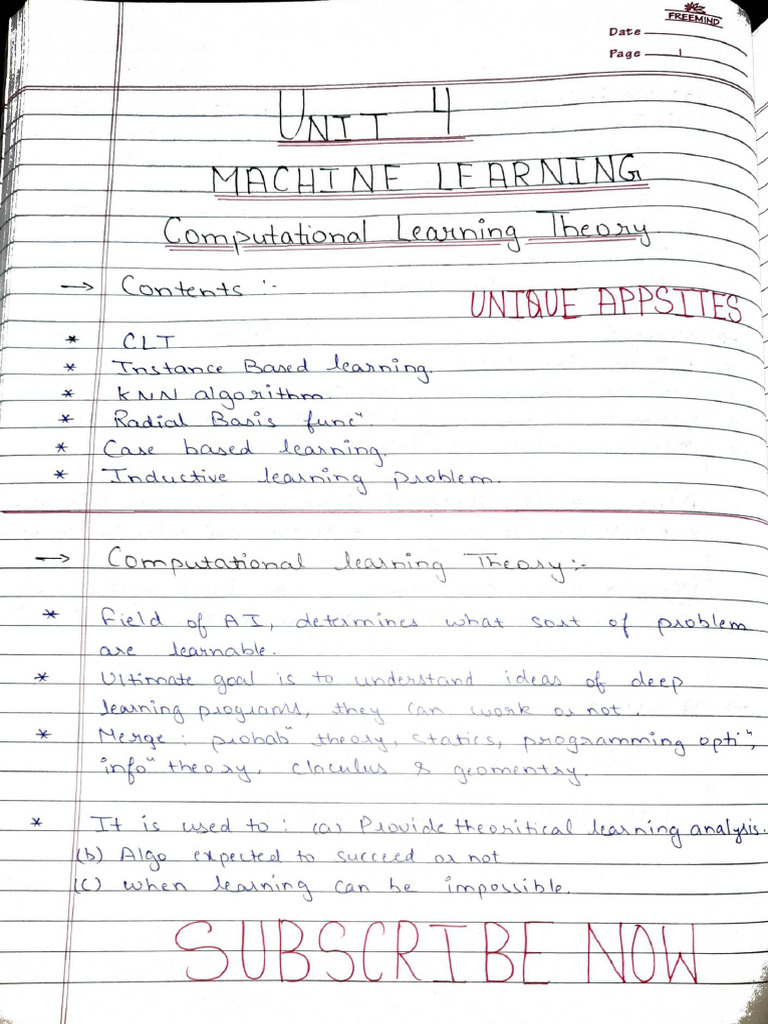 FREEMIND
Date
Page 1
UNIT 4
MACHINE LEARNING
Computational Learning Theory
→ Contents :-
UNIQUE APPSITES
* CLT
* Instance Based learning.
* KNN algorithm.
* Radial Basis func".
* Case based learning.
* Inductive learning problem.
→ Computational learning Theory:-
* Field of AI, determines what sort of problem
are learnable.
* Ultimate goal is to understand ideas of deep
learning programs, they can work or not.
* Merge: probab" theory, statics, programming opti",
info" theory, claculus & geomentry.
* It is used to: (a) Provide theoritical learning analysis.
(b) Algo expected to succeed or not
(c) when learning can be impossible.
SUBSCRIBE NOW